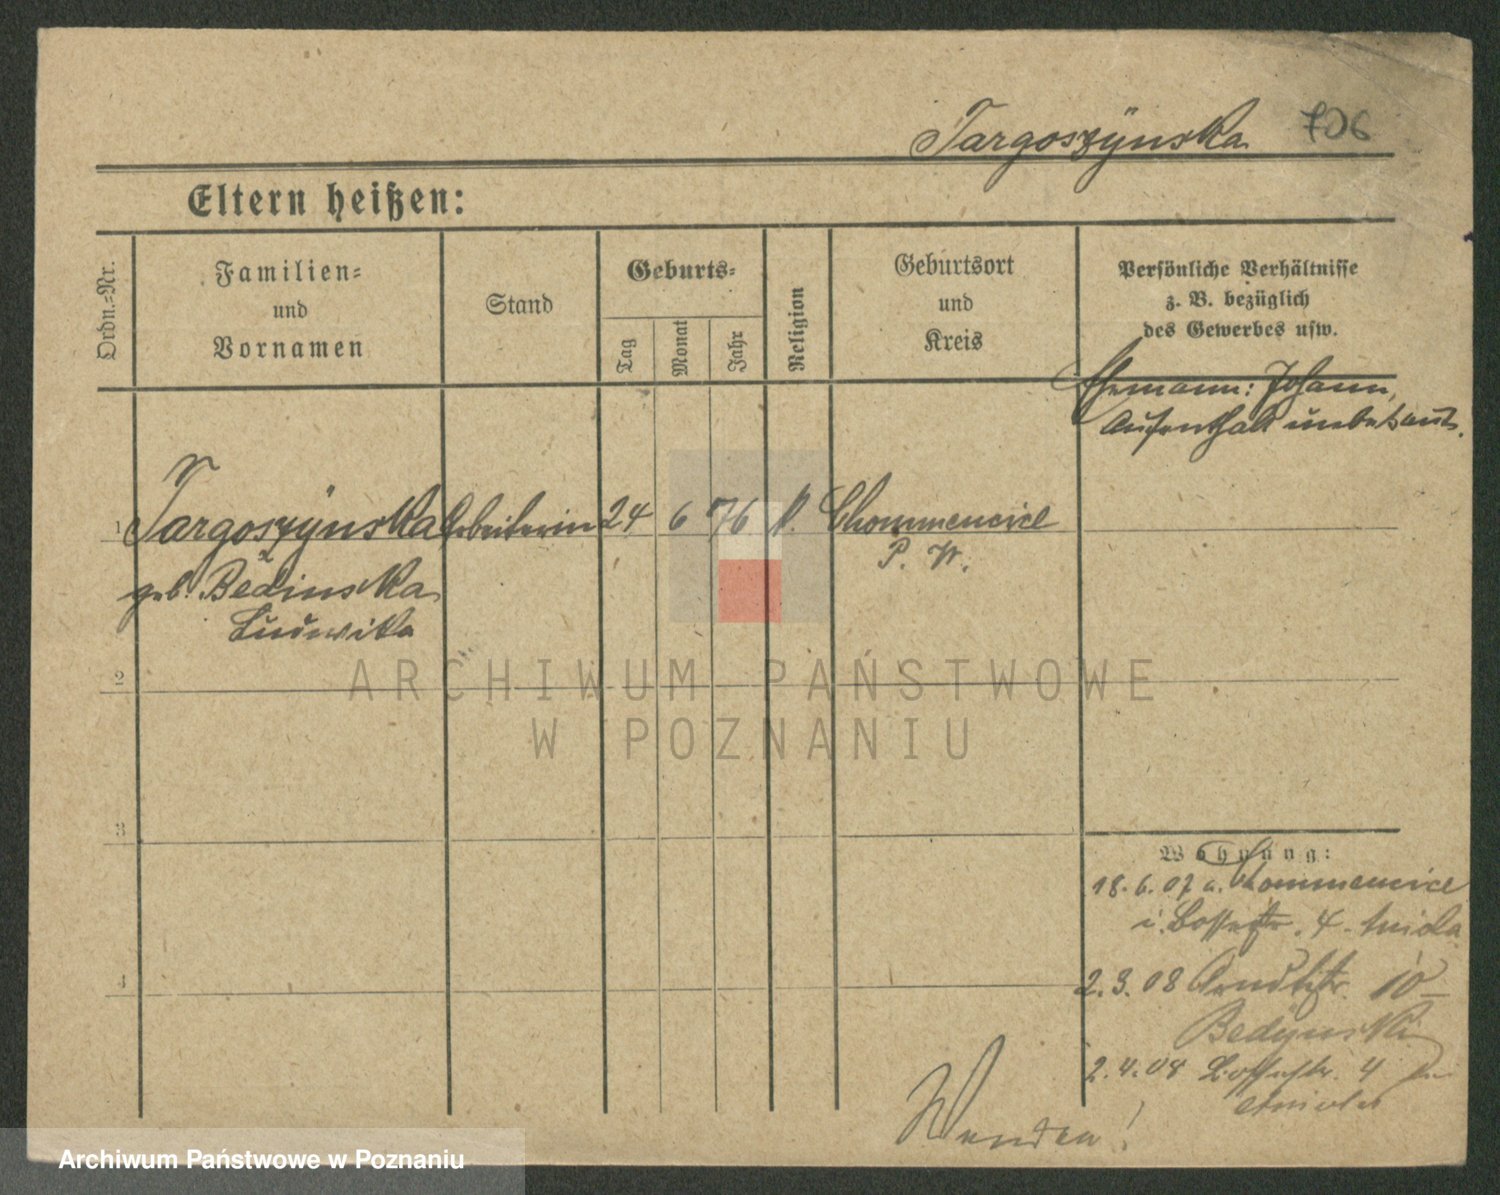 Targoszÿnska 706
Eltern heißen:
Ordn.-Nr.
Familien-
und
Vornamen
Stand
Geburts-
Tag
Monat
Jahr
Religion
Geburtsort
und
Kreis
Persönliche Verhältnisse
z. B. bezüglich
des Gewerbes usw.
Ehemann: Johann,
Aufenthalt unbekannt.
1 Targoszÿnska Arbeiterin 24 6 76 k. Chommencice
P. W.
geb. Bedinska
Ludwika
2
3
4
Wohnung:
18. 6. 07 a. Chommencice
i. 4.
2. 3. 08 10
Bedÿnski
2. 4. 08 4
Wenden!
ARCHIWUM PAŃSTWOWE
W POZNANIU
Archiwum Państwowe w Poznaniu